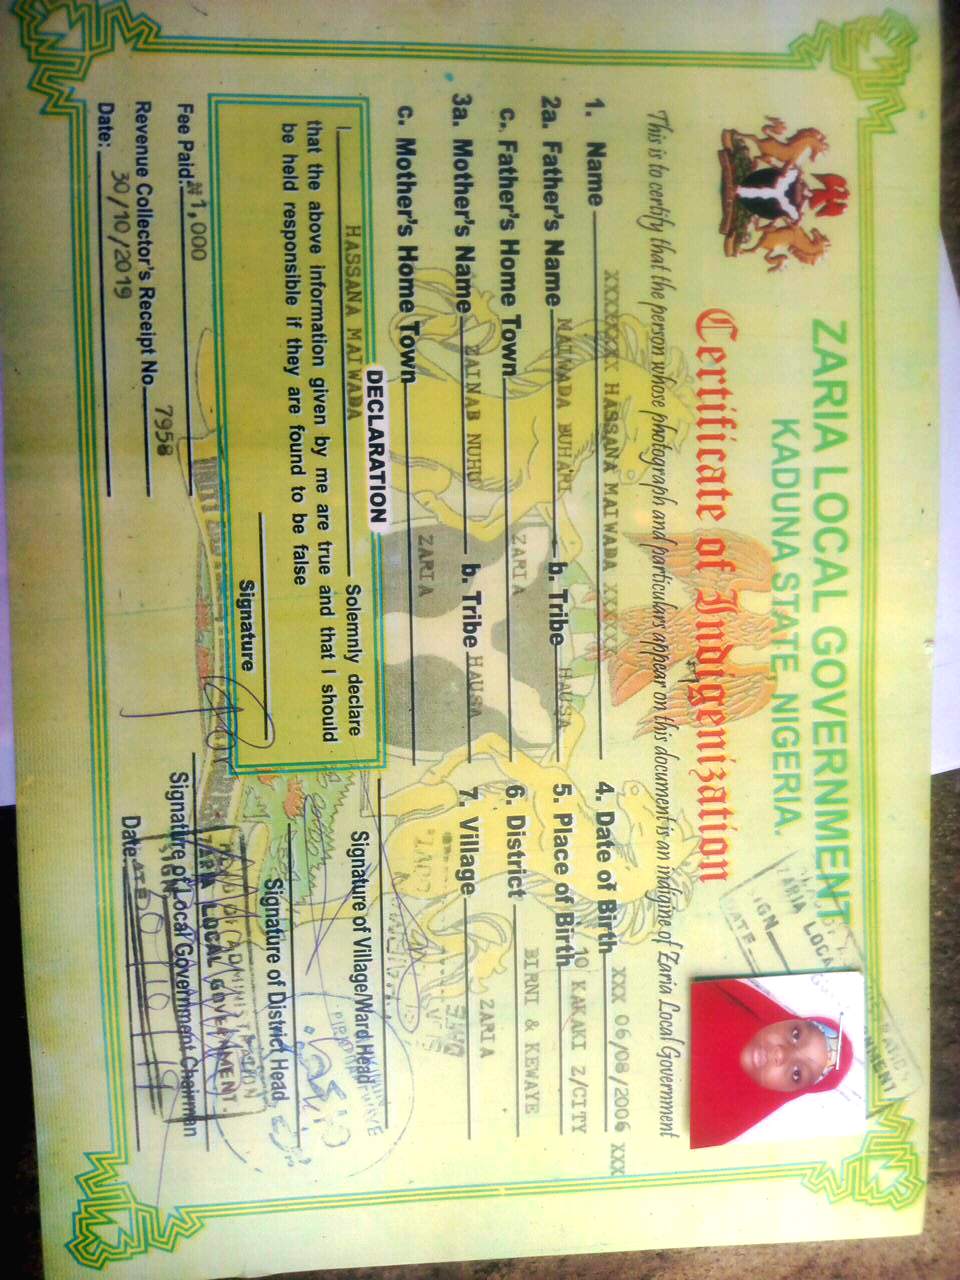 ZARIA LOCAL GOVERNMENT
KADUNA STATE, NIGERIA.
Certificate of Indigenization
This is to certify that the person whose photograph and particulars appear on this document is an indigine of Zaria Local Government
1. Name XXXXXXX HASSANA MAIWADA XXXXXX
2a. Father's Name MAIWADA BUHARI b. Tribe HAUSA
c. Father's Home Town ZARIA
3a. Mother's Name ZAINAB NUHU b. Tribe HAUSA
c. Mother's Home Town ZARIA
4. Date of Birth XXX 06/08/2006 XXX
5. Place of Birth 10 KAKAKI Z/CITY
6. District BIRNI & KEWAYE
7. Village ZARIA
DECLARATION
I HASSANA MAIWADA Solemnly declare
that the above information given by me are true and that I should
be held responsible if they are found to be false
Signature
Fee Paid: ₦1,000
Revenue Collector's Receipt No. 7958
Date: 30/10/2019
Signature of Village/Ward Head
Signature of District Head
Signature of Local Government Chairman
Date
ZARIA LOCAL GOVERNMENT.
SIGN
DATE
ZARIA LOCAL GOVERNMENT
SIGN
DATE